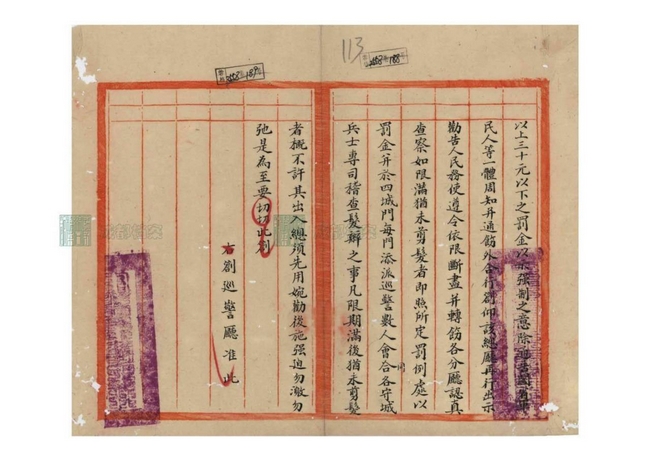 以上三十元以下之罰金以示强制之意除
民人等一體周知并通飭外合行劄仰該總廳再行出示
勸告人民務使遵令依限斷盡并轉飭各分廳認真
查察如限滿猶未剪髮者即照所定罰例處以
罰金并於四城門每門添派巡警數人會合各守城
兵士專司稽查髮辮之事凡限期滿後猶未剪髮
者概不許其出入總須先用婉勸後施强迫勿激勿
弛是為至要切切此劄
右劄巡警廳准此
113